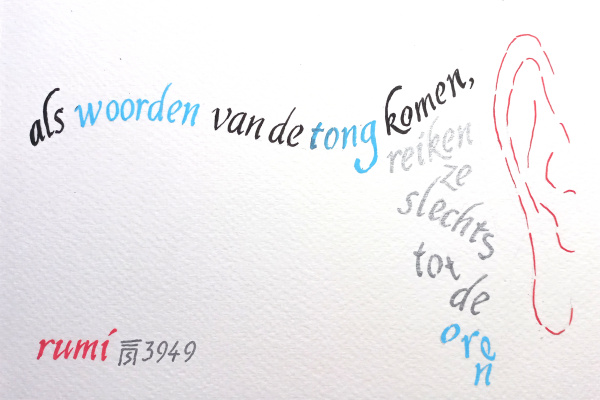 als woorden van de tong komen,
reiken
ze
slechts
tot
de
oren
rumi 3949